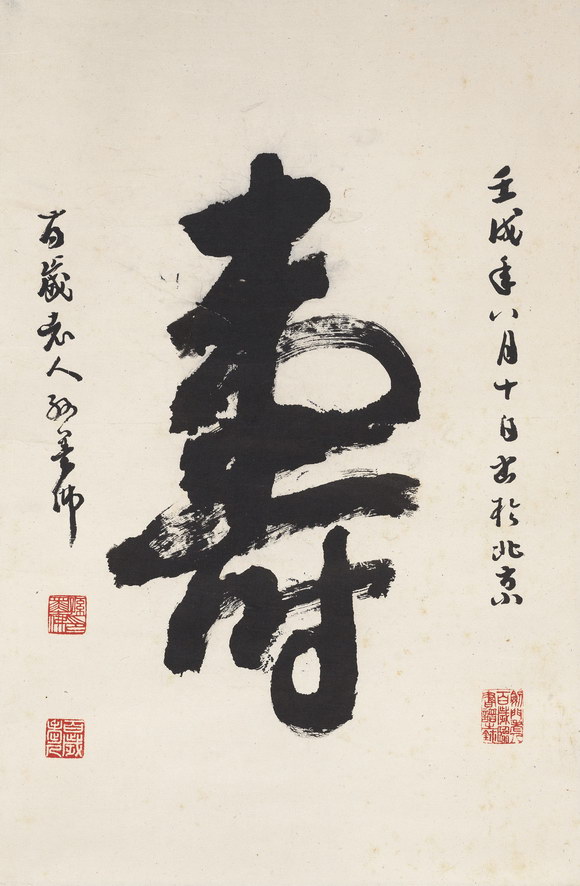 壽
壬戌年八月十日書於北京
百歲老人孫墨佛
百歲老人